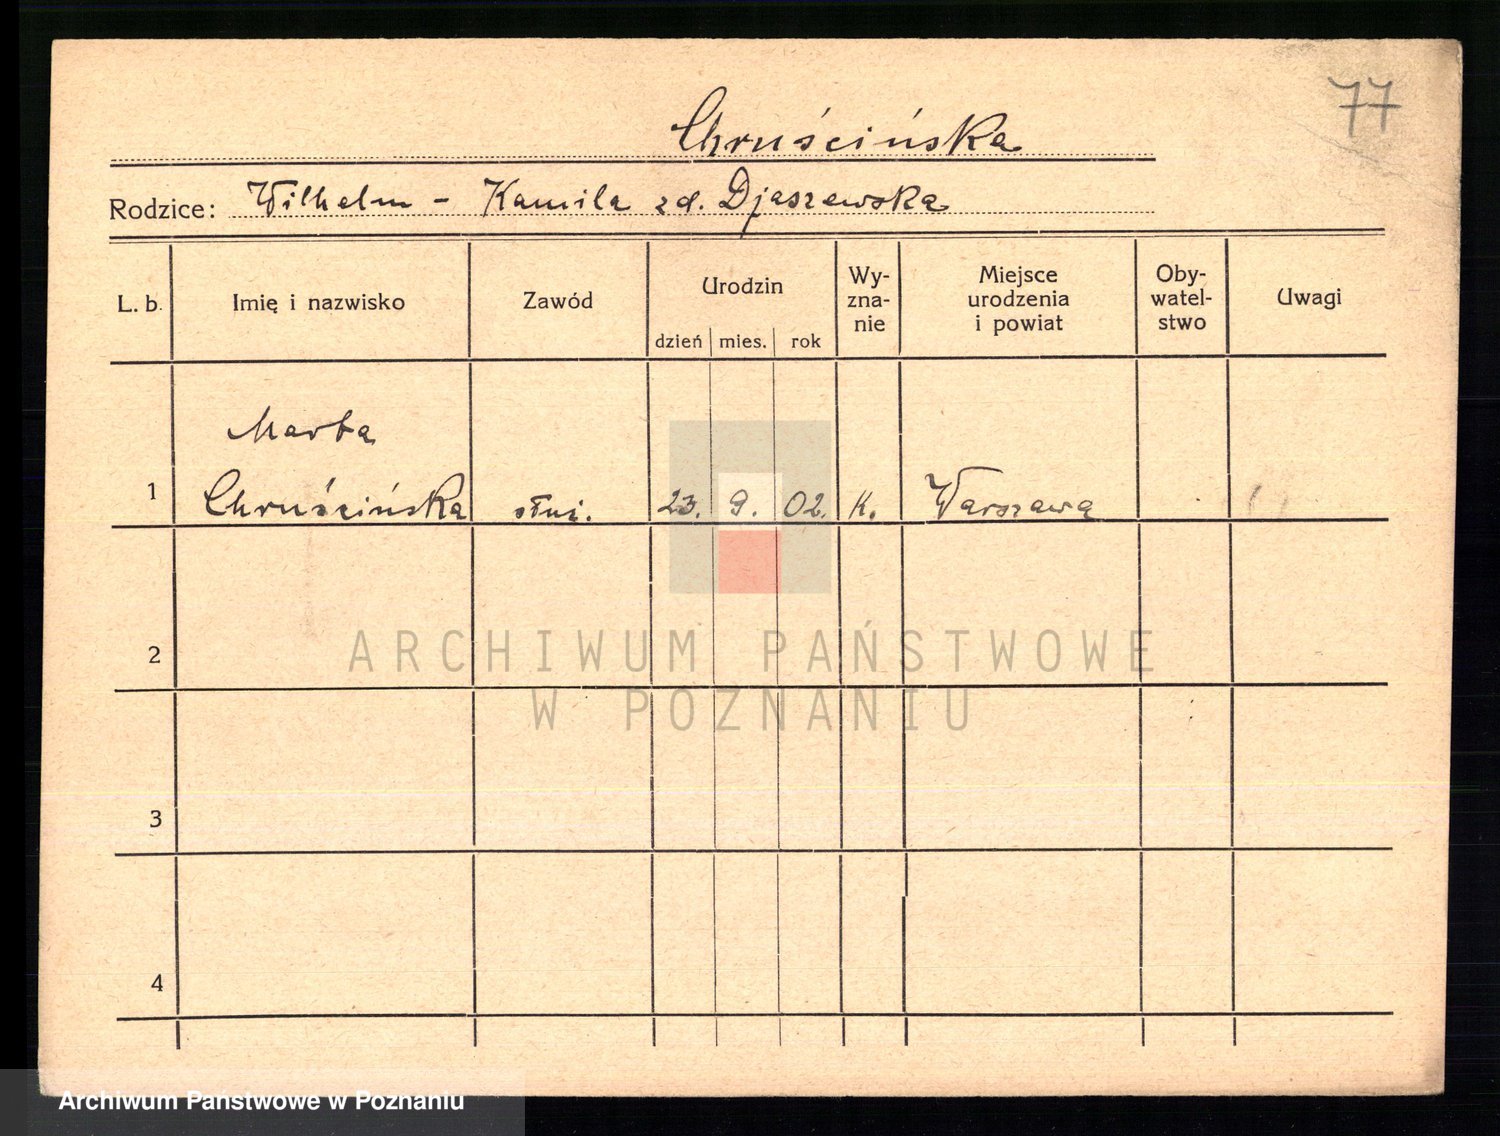 77
Chruścińska
Rodzice: Wilhelm - Kamila zd. Djaszewska
L. b.
Imię i nazwisko
Zawód
Urodzin
dzień mies. rok
Wy-
zna-
nie
Miejsce
urodzenia
i powiat
Oby-
watel-
stwo
Uwagi
Marta
1 Chruścińska służ. 23. 9. 02. K. Warszawa
2
3
4
ARCHIWUM PAŃSTWOWE
W POZNANIU
Archiwum Państwowe w Poznaniu